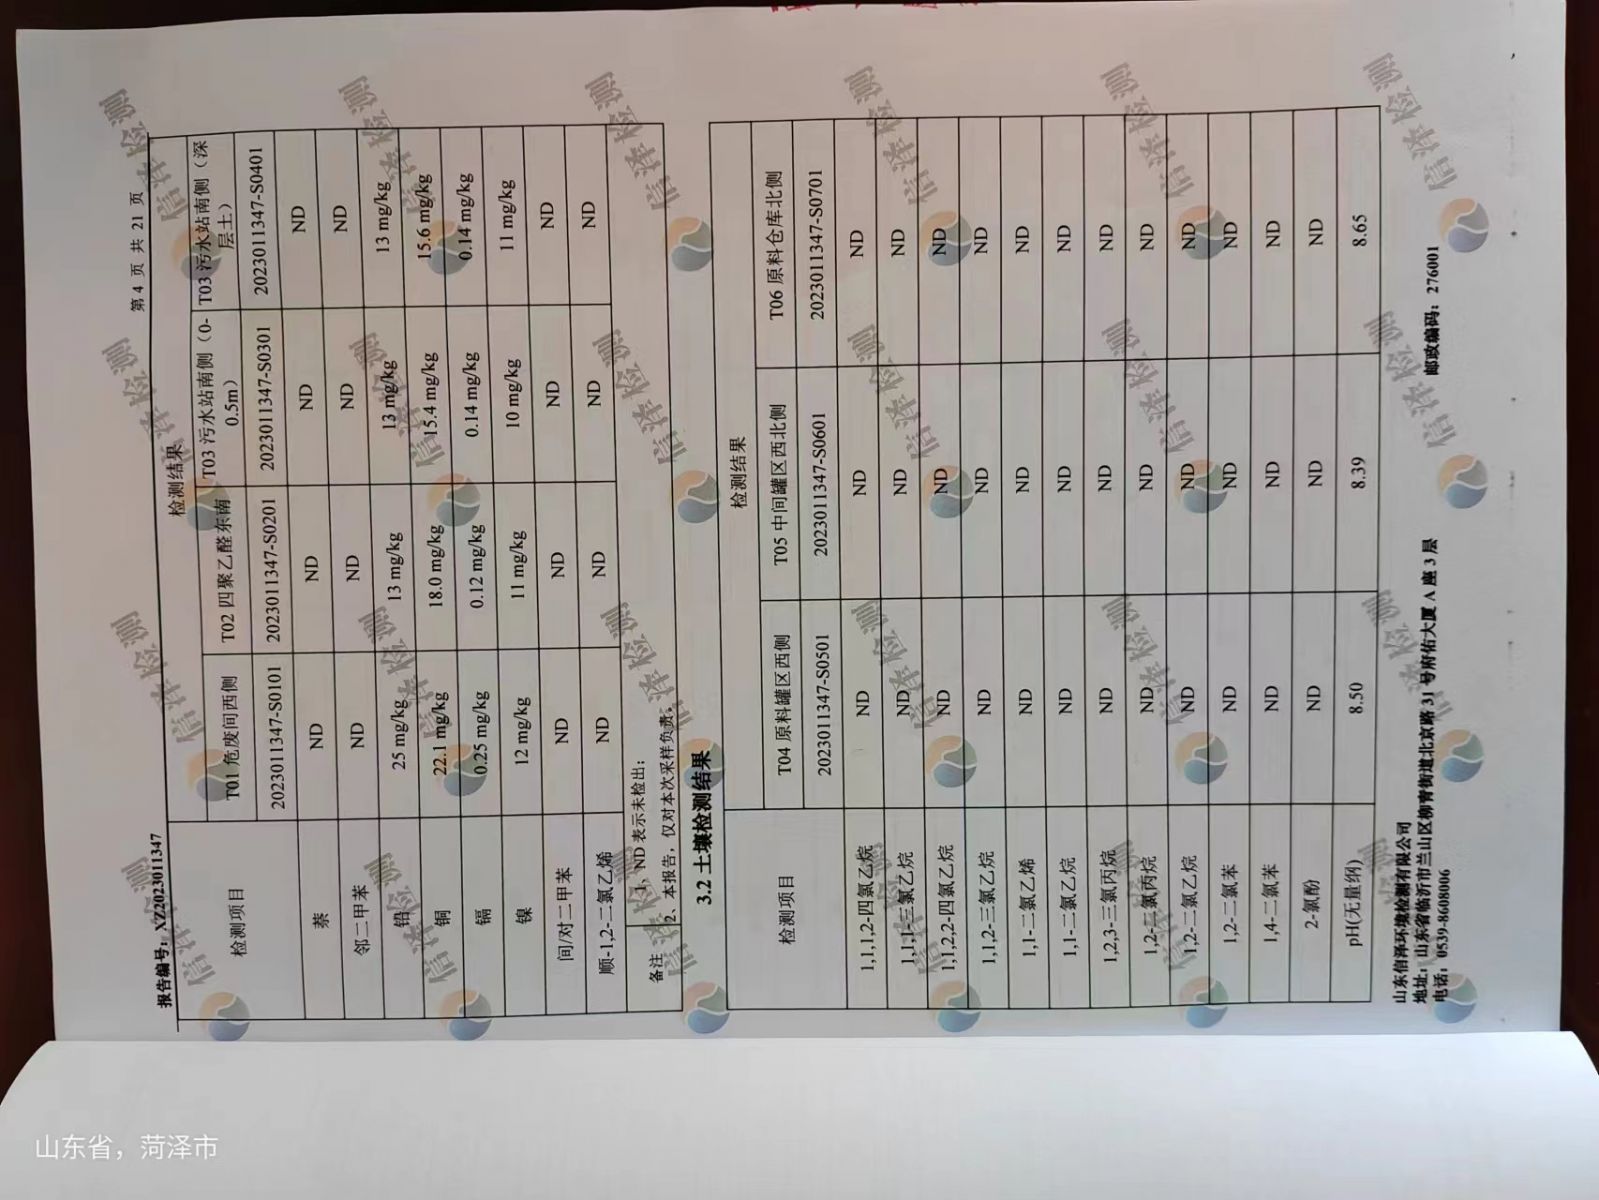 报告编号：XZ2023011347 第 4 页 共 21 页
检测项目 检测结果
T01 危废间西侧 T02 四聚乙醛东南 T03 污水站南侧（0-0.5m） T03 污水站南侧（深层土）
2023011347-S0101 2023011347-S0201 2023011347-S0301 2023011347-S0401
萘 ND ND ND ND
邻二甲苯 ND ND ND ND
铅 25 mg/kg 13 mg/kg 13 mg/kg 13 mg/kg
铜 22.1 mg/kg 18.0 mg/kg 15.4 mg/kg 15.6 mg/kg
镉 0.25 mg/kg 0.12 mg/kg 0.14 mg/kg 0.14 mg/kg
镍 12 mg/kg 11 mg/kg 10 mg/kg 11 mg/kg
间/对二甲苯 ND ND ND ND
顺-1,2-二氯乙烯 ND ND ND ND
备注 1、ND 表示未检出；
2、本报告，仅对本次采样负责。
3.2 土壤检测结果
检测项目 检测结果
T04 原料罐区西侧 T05 中间罐区西北侧 T06 原料仓库北侧
2023011347-S0501 2023011347-S0601 2023011347-S0701
1,1,1,2-四氯乙烷 ND ND ND
1,1,1-三氯乙烷 ND ND ND
1,1,2,2-四氯乙烷 ND ND ND
1,1,2-三氯乙烷 ND ND ND
1,1-二氯乙烯 ND ND ND
1,1-二氯乙烷 ND ND ND
1,2,3-三氯丙烷 ND ND ND
1,2-二氯丙烷 ND ND ND
1,2-二氯乙烷 ND ND ND
1,2-二氯苯 ND ND ND
1,4-二氯苯 ND ND ND
2-氯酚 ND ND ND
pH(无量纲) 8.50 8.39 8.65
山东信泽环境检测有限公司
地址：山东省临沂市兰山区柳青街道北京路 31 号府佑大厦 A 座 3 层
电话：0539-8608006 邮政编码：276001
信泽检测
山东省，菏泽市